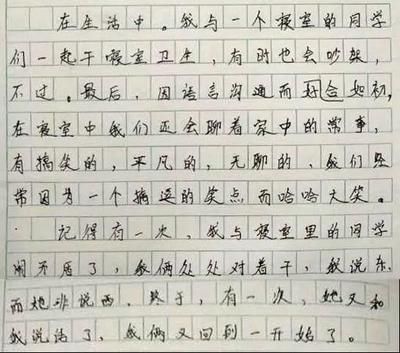 在生活中。我与一个寝室的同学
们一起干寝室卫生，有时也会吵架，
不过。最后，因语言沟通而好会如初，
在寝室中我们还会聊着家中的常事，
有搞笑的，平凡的，无聊的、我们经
常因为一个搞逗的笑点而哈哈大笑。
记得有一次，我与寝室里的同学
闹矛盾了，我俩处处对着干，我说东，
而她非说西。终于，有一次，她又和
我说话了，我俩又回到一开始了。